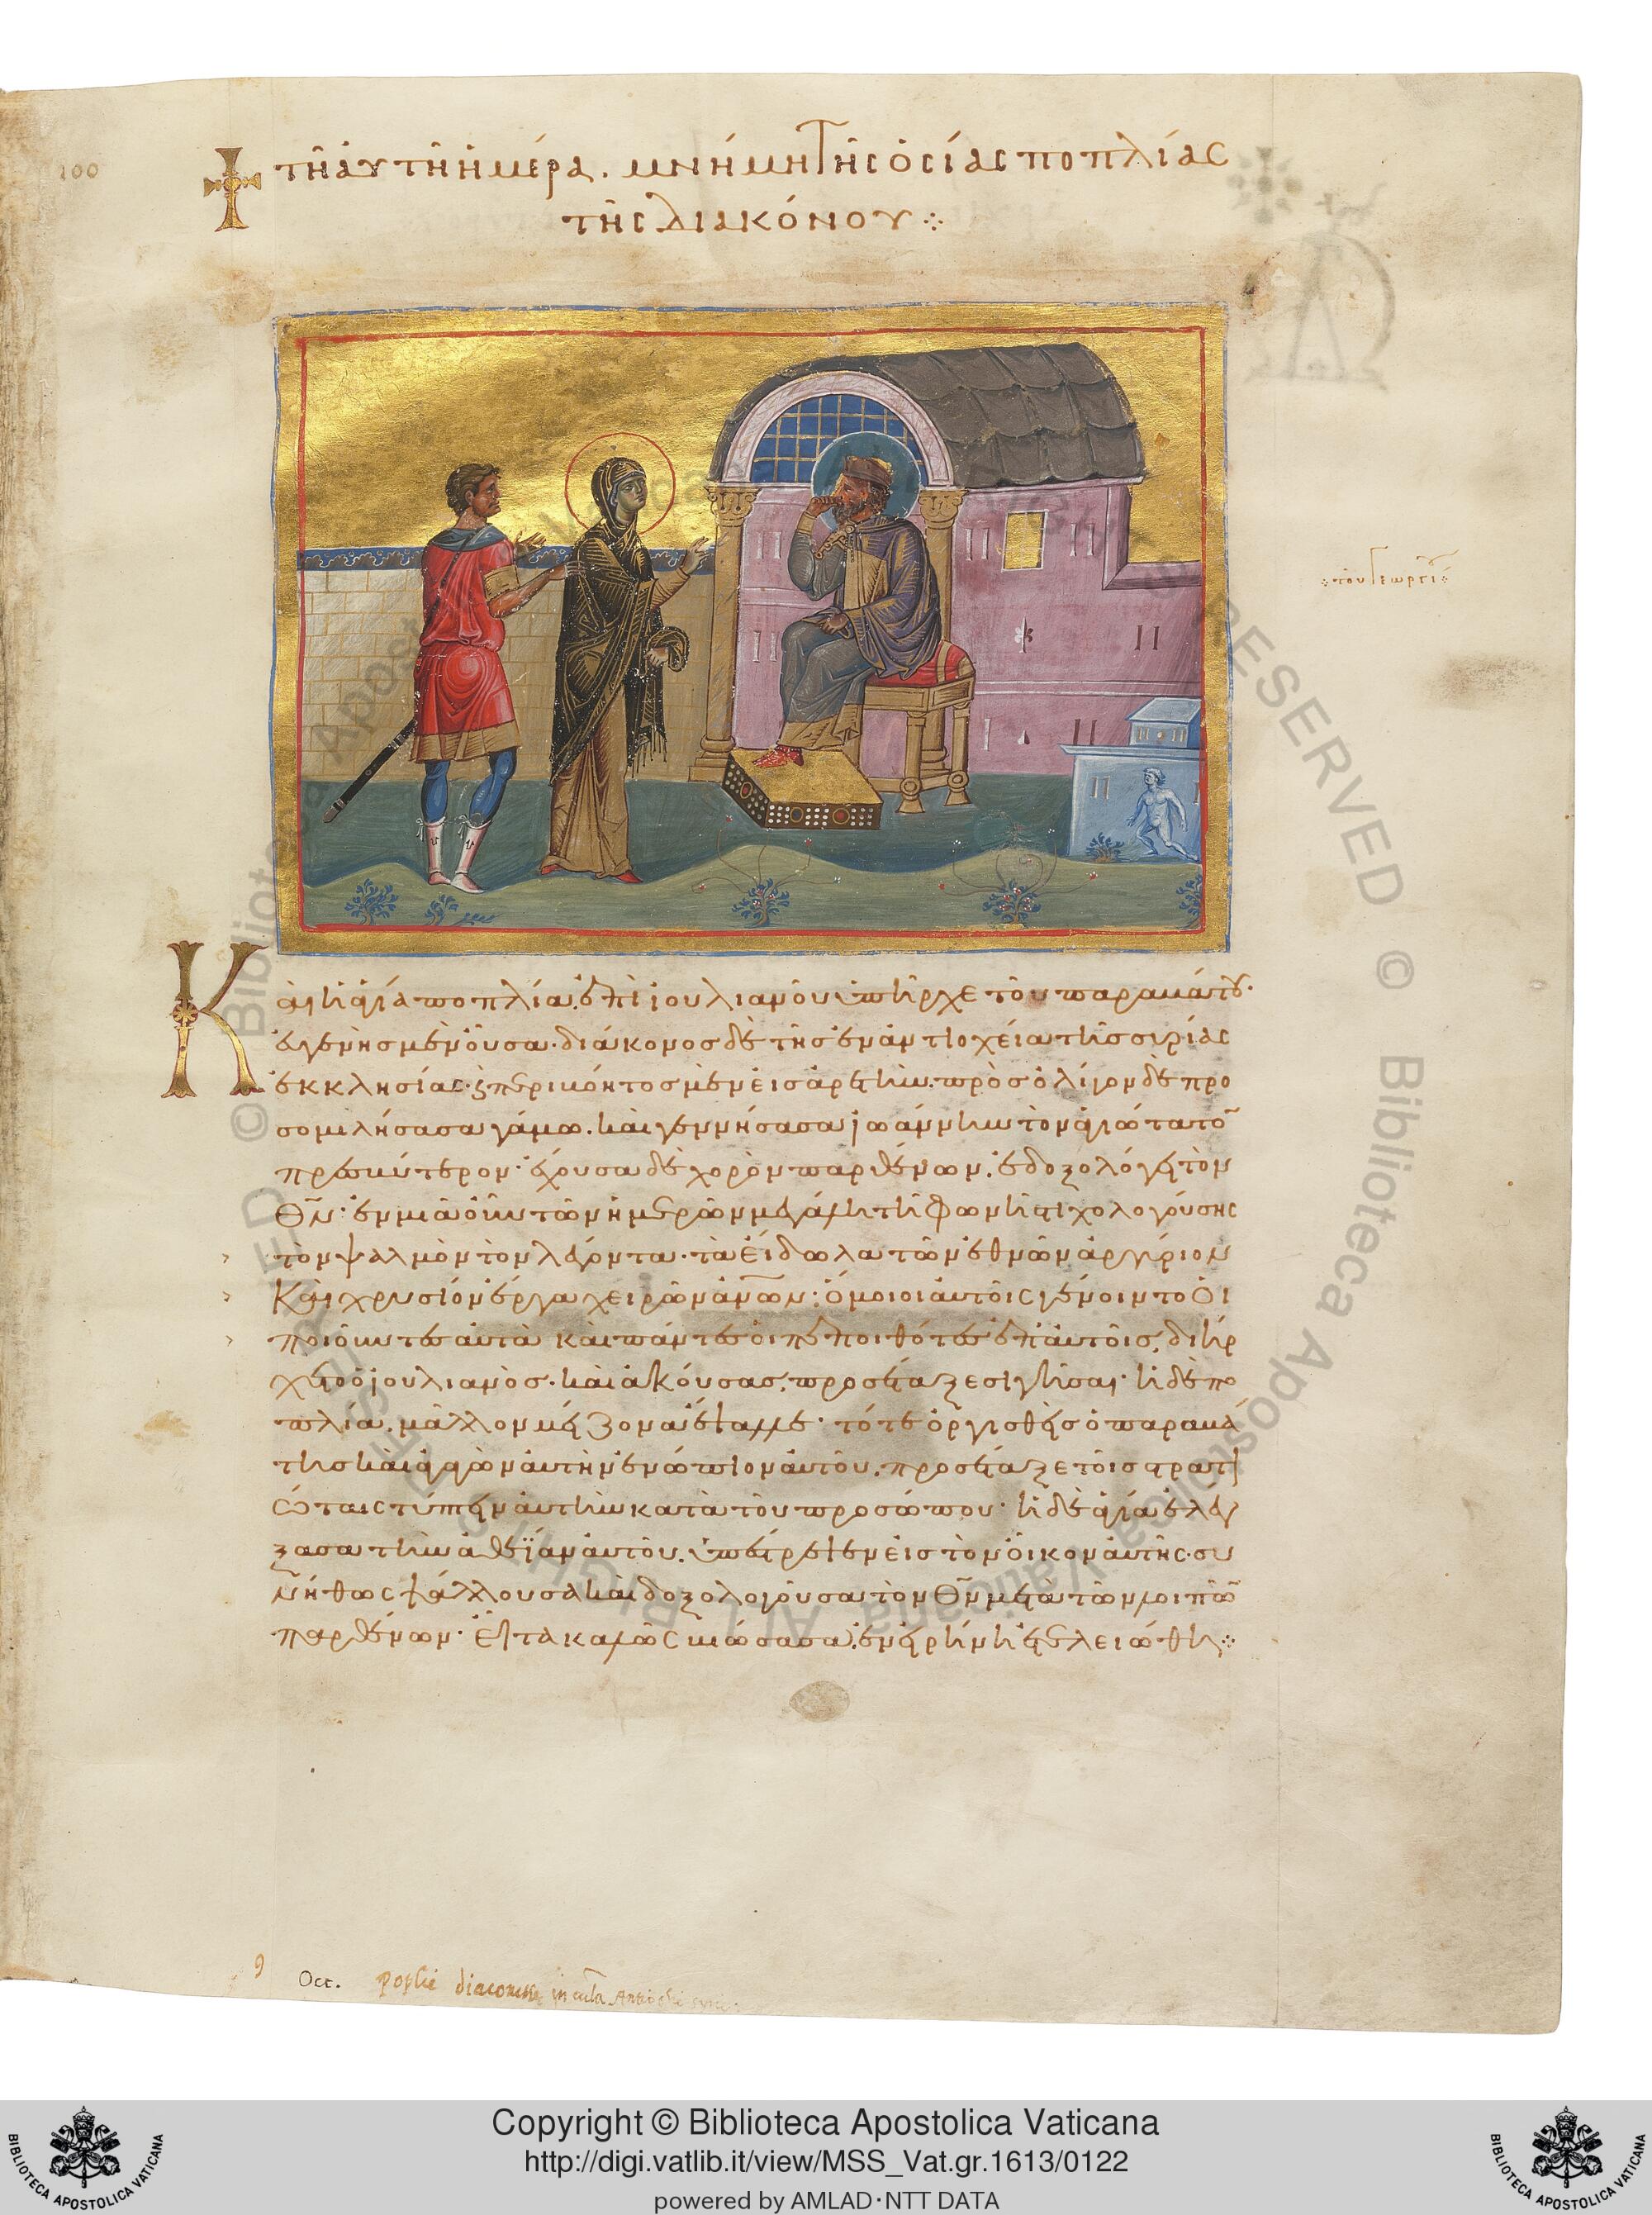 100
τῆ αὐτῆ ἡμέρα. μνήμη τῆς ὁσίας ποπλίας
τῆς διακόνου
τοῦ γεωργί
Καὶ ἡ ἁγία ποπλία, ἐπὶ ἰουλιανοῦ ὑπῆρχε τοῦ παραβάτου.
εὐγενὴς μὲν οὖσα. διάκονος δὲ τῆς ἐν ἀντιοχεία τῆς συρίας
ἐκκλησίας. ἐξ περικόντος μὲν εἰς ἀρετήν. πρὸς ὀλίγον δὲ προ
σομιλήσασα γάμω. καὶ γεννήσασα ἰωάννην τὸν ἁγιώτατο
πρεσβύτερον. ἔχουσα δὲ χορὸν παρθένων, ἐδοξολόγει τὸν
Θν. ἐν μιᾶ οὖν τῶν ἡμερῶν μεγάλη τῆ φωνῆ στιχολογούσης
τὸν ψαλμὸν τὸν λέγοντα. τὰ εἴδωλα τῶν ἐθνῶν ἀργύριον
Καὶ χρυσίον ἔργα χειρῶν ἀνων. ὅμοιοι αὐτοῖς γένοιντο οἱ
ποιοῦντες αὐτὰ καὶ πάντες οἱ πεποιθότες ἐπ' αὐτοῖς, διήρ
χετο ὁ ἰουλιανός. καὶ ἀκούσας, προσέταξε σιγῆσαι. ἡ δὲ πο
πλία, μᾶλλον μεῖζον ἔψαλλε. τότε ὀργισθεὶς ὁ παραβά
της καὶ ἀγαγὼν αὐτὴν ἐνώπιον αὐτοῦ, προσέταξε τοῖς στρατι
ώταις τύπτειν αὐτὴν κατὰ τοῦ προσώπου. ἡ δὲ ἁγία ἐλέγ
ξασα τὴν ἀθεΐαν αὐτοῦ, ὑπέστρεψεν εἰς τὸν οἶκον αὐτῆς. συ
νήθως ψάλλουσα καὶ δοξολογοῦσα τὸν Θν μετὰ τῶν λοιπῶ
παρθένων. Εἶτα καλῶς βιώσασα, ἐν εἰρήνη ἐτελειώθη
9 Oct. Poplie diaconisse in eccla Antiochi syrie
Copyright © Biblioteca Apostolica Vaticana
http://digi.vatlib.it/view/MSS_Vat.gr.1613/0122
powered by AMLAD·NTT DATA
BIBLIOTECA APOSTOLICA VATICANA
BIBLIOTECA APOSTOLICA VATICANA